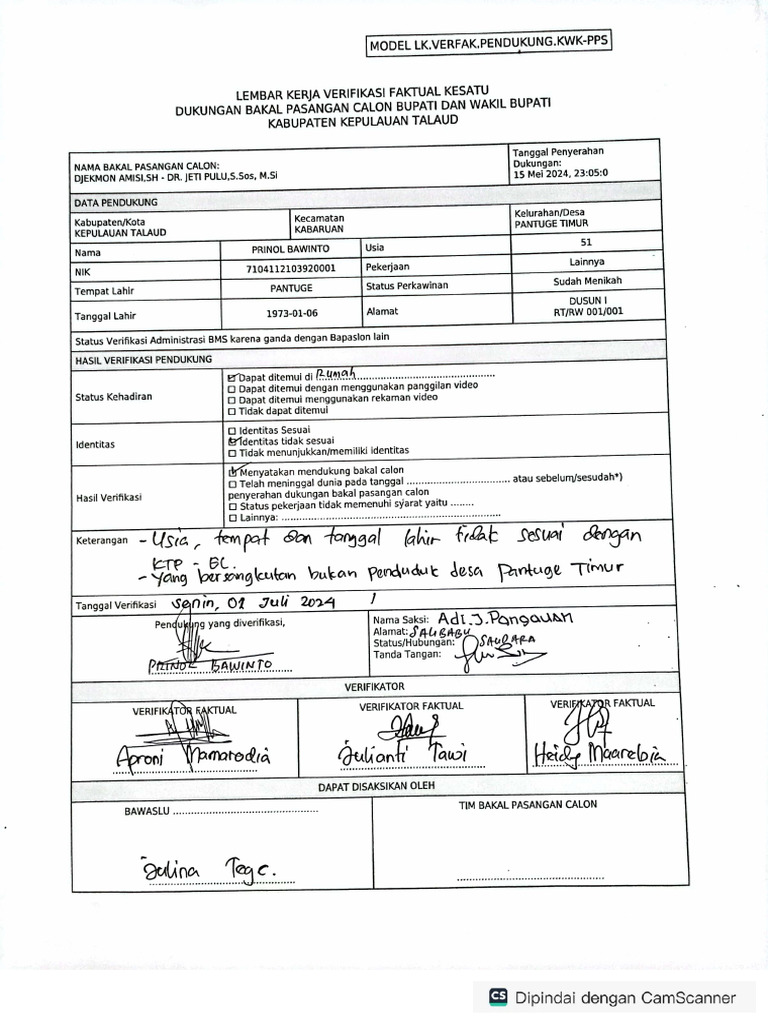 MODEL LK.VERFAK.PENDUKUNG.KWK-PPS
LEMBAR KERJA VERIFIKASI FAKTUAL KESATU
DUKUNGAN BAKAL PASANGAN CALON BUPATI DAN WAKIL BUPATI
KABUPATEN KEPULAUAN TALAUD
NAMA BAKAL PASANGAN CALON:
DJEKMON AMISI,SH - DR. JETI PULU,S.Sos, M.Si
Tanggal Penyerahan
Dukungan:
15 Mei 2024, 23:05:0
DATA PENDUKUNG
Kabupaten/Kota
KEPULAUAN TALAUD
Kecamatan
KABARUAN
Kelurahan/Desa
PANTUGE TIMUR
Nama PRINOL BAWINTO Usia 51
NIK 7104112103920001 Pekerjaan Lainnya
Tempat Lahir PANTUGE Status Perkawinan Sudah Menikah
Tanggal Lahir 1973-01-06 Alamat DUSUN I
RT/RW 001/001
Status Verifikasi Administrasi BMS karena ganda dengan Bapaslon lain
HASIL VERIFIKASI PENDUKUNG
Status Kehadiran
☑ Dapat ditemui di Rumah
☐ Dapat ditemui dengan menggunakan panggilan video
☐ Dapat ditemui menggunakan rekaman video
☐ Tidak dapat ditemui
Identitas
☐ Identitas Sesuai
☑ Identitas tidak sesuai
☐ Tidak menunjukkan/memiliki identitas
Hasil Verifikasi
☑ Menyatakan mendukung bakal calon
☐ Telah meninggal dunia pada tanggal ................................ atau sebelum/sesudah*)
penyerahan dukungan bakal pasangan calon
☐ Status pekerjaan tidak memenuhi syarat yaitu .......
☐ Lainnya: ................................................
Keterangan - Usia, tempat dan tanggal lahir tidak sesuai dengan
KTP - EL.
- Yang bersangkutan bukan penduduk desa Pantuge Timur
Tanggal Verifikasi Senin, 01 Juli 2024
Pendukung yang diverifikasi,
PRINOL BAWINTO
Nama Saksi: Adi.J.Pangauan
Alamat: SALIBABU
Status/Hubungan: SAUDARA
Tanda Tangan:
VERIFIKATOR
VERIFIKATOR FAKTUAL
Aproni Mamarodia
VERIFIKATOR FAKTUAL
Julianti Tawi
VERIFIKATOR FAKTUAL
Heidy Maarebia
DAPAT DISAKSIKAN OLEH
BAWASLU ........................................
Julina
TIM BAKAL PASANGAN CALON
........................................
CS Dipindai dengan CamScanner